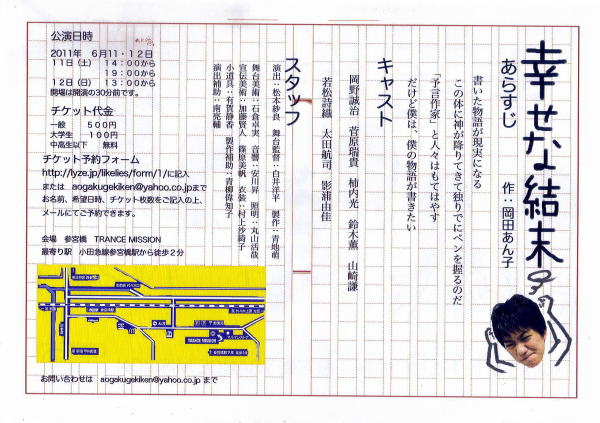 幸せな結末
作：岡田あん子
あらすじ
書いた物語が現実になる
この体に神が降りてきて独りでにペンを握るのだ
「予言作家」と人々はもてはやす
だけど僕は、僕の物語が書きたい
キャスト
岡野誠治　菅原瑞貴　柿内光　鈴木薫　山崎謙
若松詩織　太田航司　影浦由佳
スタッフ
演出：松本紗良　舞台監督：白井洋平　製作：青地萌
舞台美術：石倉卓実　音響：安川昇　照明：丸山活哉
宣伝美術：加藤賢人　篠原美帆　衣装：村上沙綺子
小道具：有賀静香　製作補助：青柳偉知子
演出補助：南亮輔
公演日時
2011年　6月11・12日
11日（土）　14：00から
19：00から
12日（日）　13：00から
開場は開演の30分前です。
チケット代金
一般　500円
大学生　100円
中高生以下　無料
チケット予約フォーム
http://lyze.jp/likelies/form/1/に記入
または　aogakugekiken@yahoo.co.jpまで
お名前、希望日時、チケット枚数をご記入の上、
メールにてご予約できます。
会場　参宮橋　TRANCE MISSION
最寄り駅　小田急線参宮橋駅から徒歩２分
TRANCE MISSION
お問い合わせは　aogakugekiken@yahoo.co.jp まで